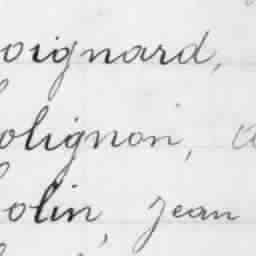 oignard,
olignon, a
olin, jean